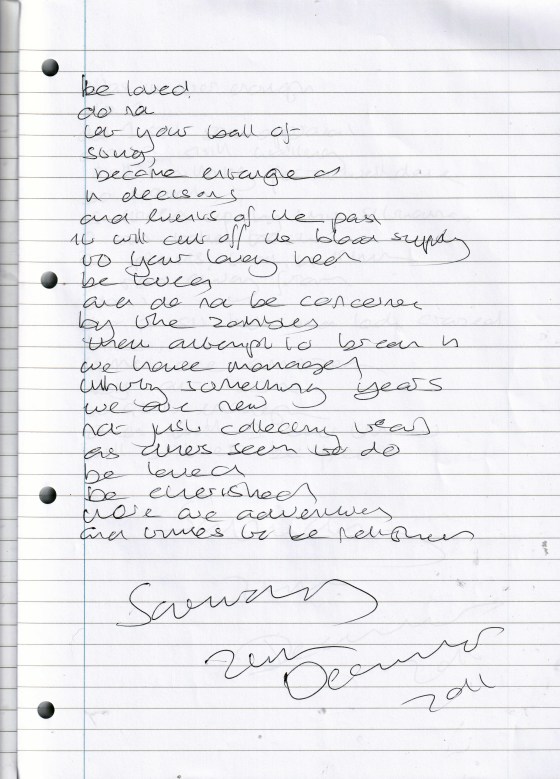 be loved
do not
let your ball of
string,
become entangled
in decisions
and events of the past
it will cut off the blood supply
to your lovely heart
be loved
and do not be concerned
by the zombies
their attempt to break in
we have managed
thirty something years
we are new
not just collecting years
as others seem to do
be loved
be cherished
there are adventures
and times to be
2011